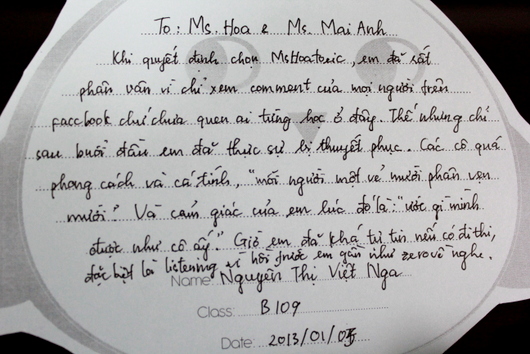 To: Ms. Hoa & Ms. Mai Anh
Khi quyết định chọn MsHoaToeic, em đã rất
phân vân vì chỉ xem comment của mọi người trên
facebook chứ chưa quen ai từng học ở đây. Thế nhưng chỉ
sau buổi đầu em đã thực sự bị thuyết phục. Các cô quá
phong cách và cá tính, "mỗi người một vẻ mười phân vẹn
mười". Và cảm giác của em lúc đó là: "ước gì mình
được như cô ấy". Giờ em đã khá tự tin nếu có đi thi,
đặc biệt là listening vì hồi trước em gần như zero về nghe.
Name: Nguyễn Thị Việt Nga
Class: B109
Date: 2013/01/05